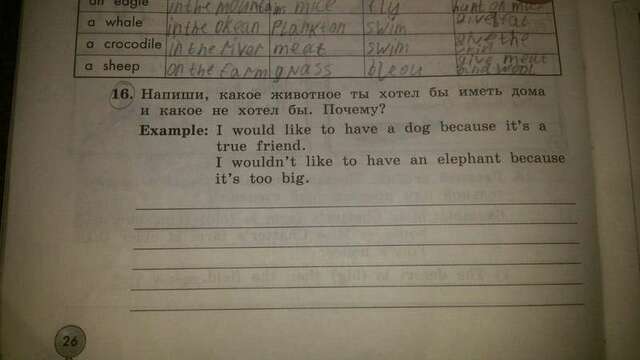 an eagle in the mountains mice fly hunt on mice
a whale in the okean plankton swim give fat
a crocodile in the river meat swim give the
a sheep on the farm grass give meat
and wool
16. Напиши, какое животное ты хотел бы иметь дома
и какое не хотел бы. Почему?
Example: I would like to have a dog because it's a
true friend.
I wouldn't like to have an elephant because
it's too big.
26